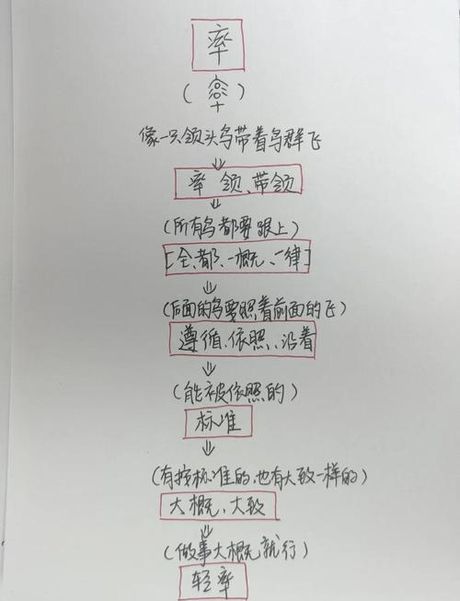 率
像一只领头鸟带着鸟群飞
⇓
率领、带领
⇓
(所有鸟都要跟上)
[全、都、一概、一律]
⇓
(后面的鸟要照着前面的飞)
遵循、依照、沿着
⇓
(能被依照的)
标准
⇓
(有按标准的,也有大致一样的)
大概、大致
⇓
(做事大概就行)
轻率